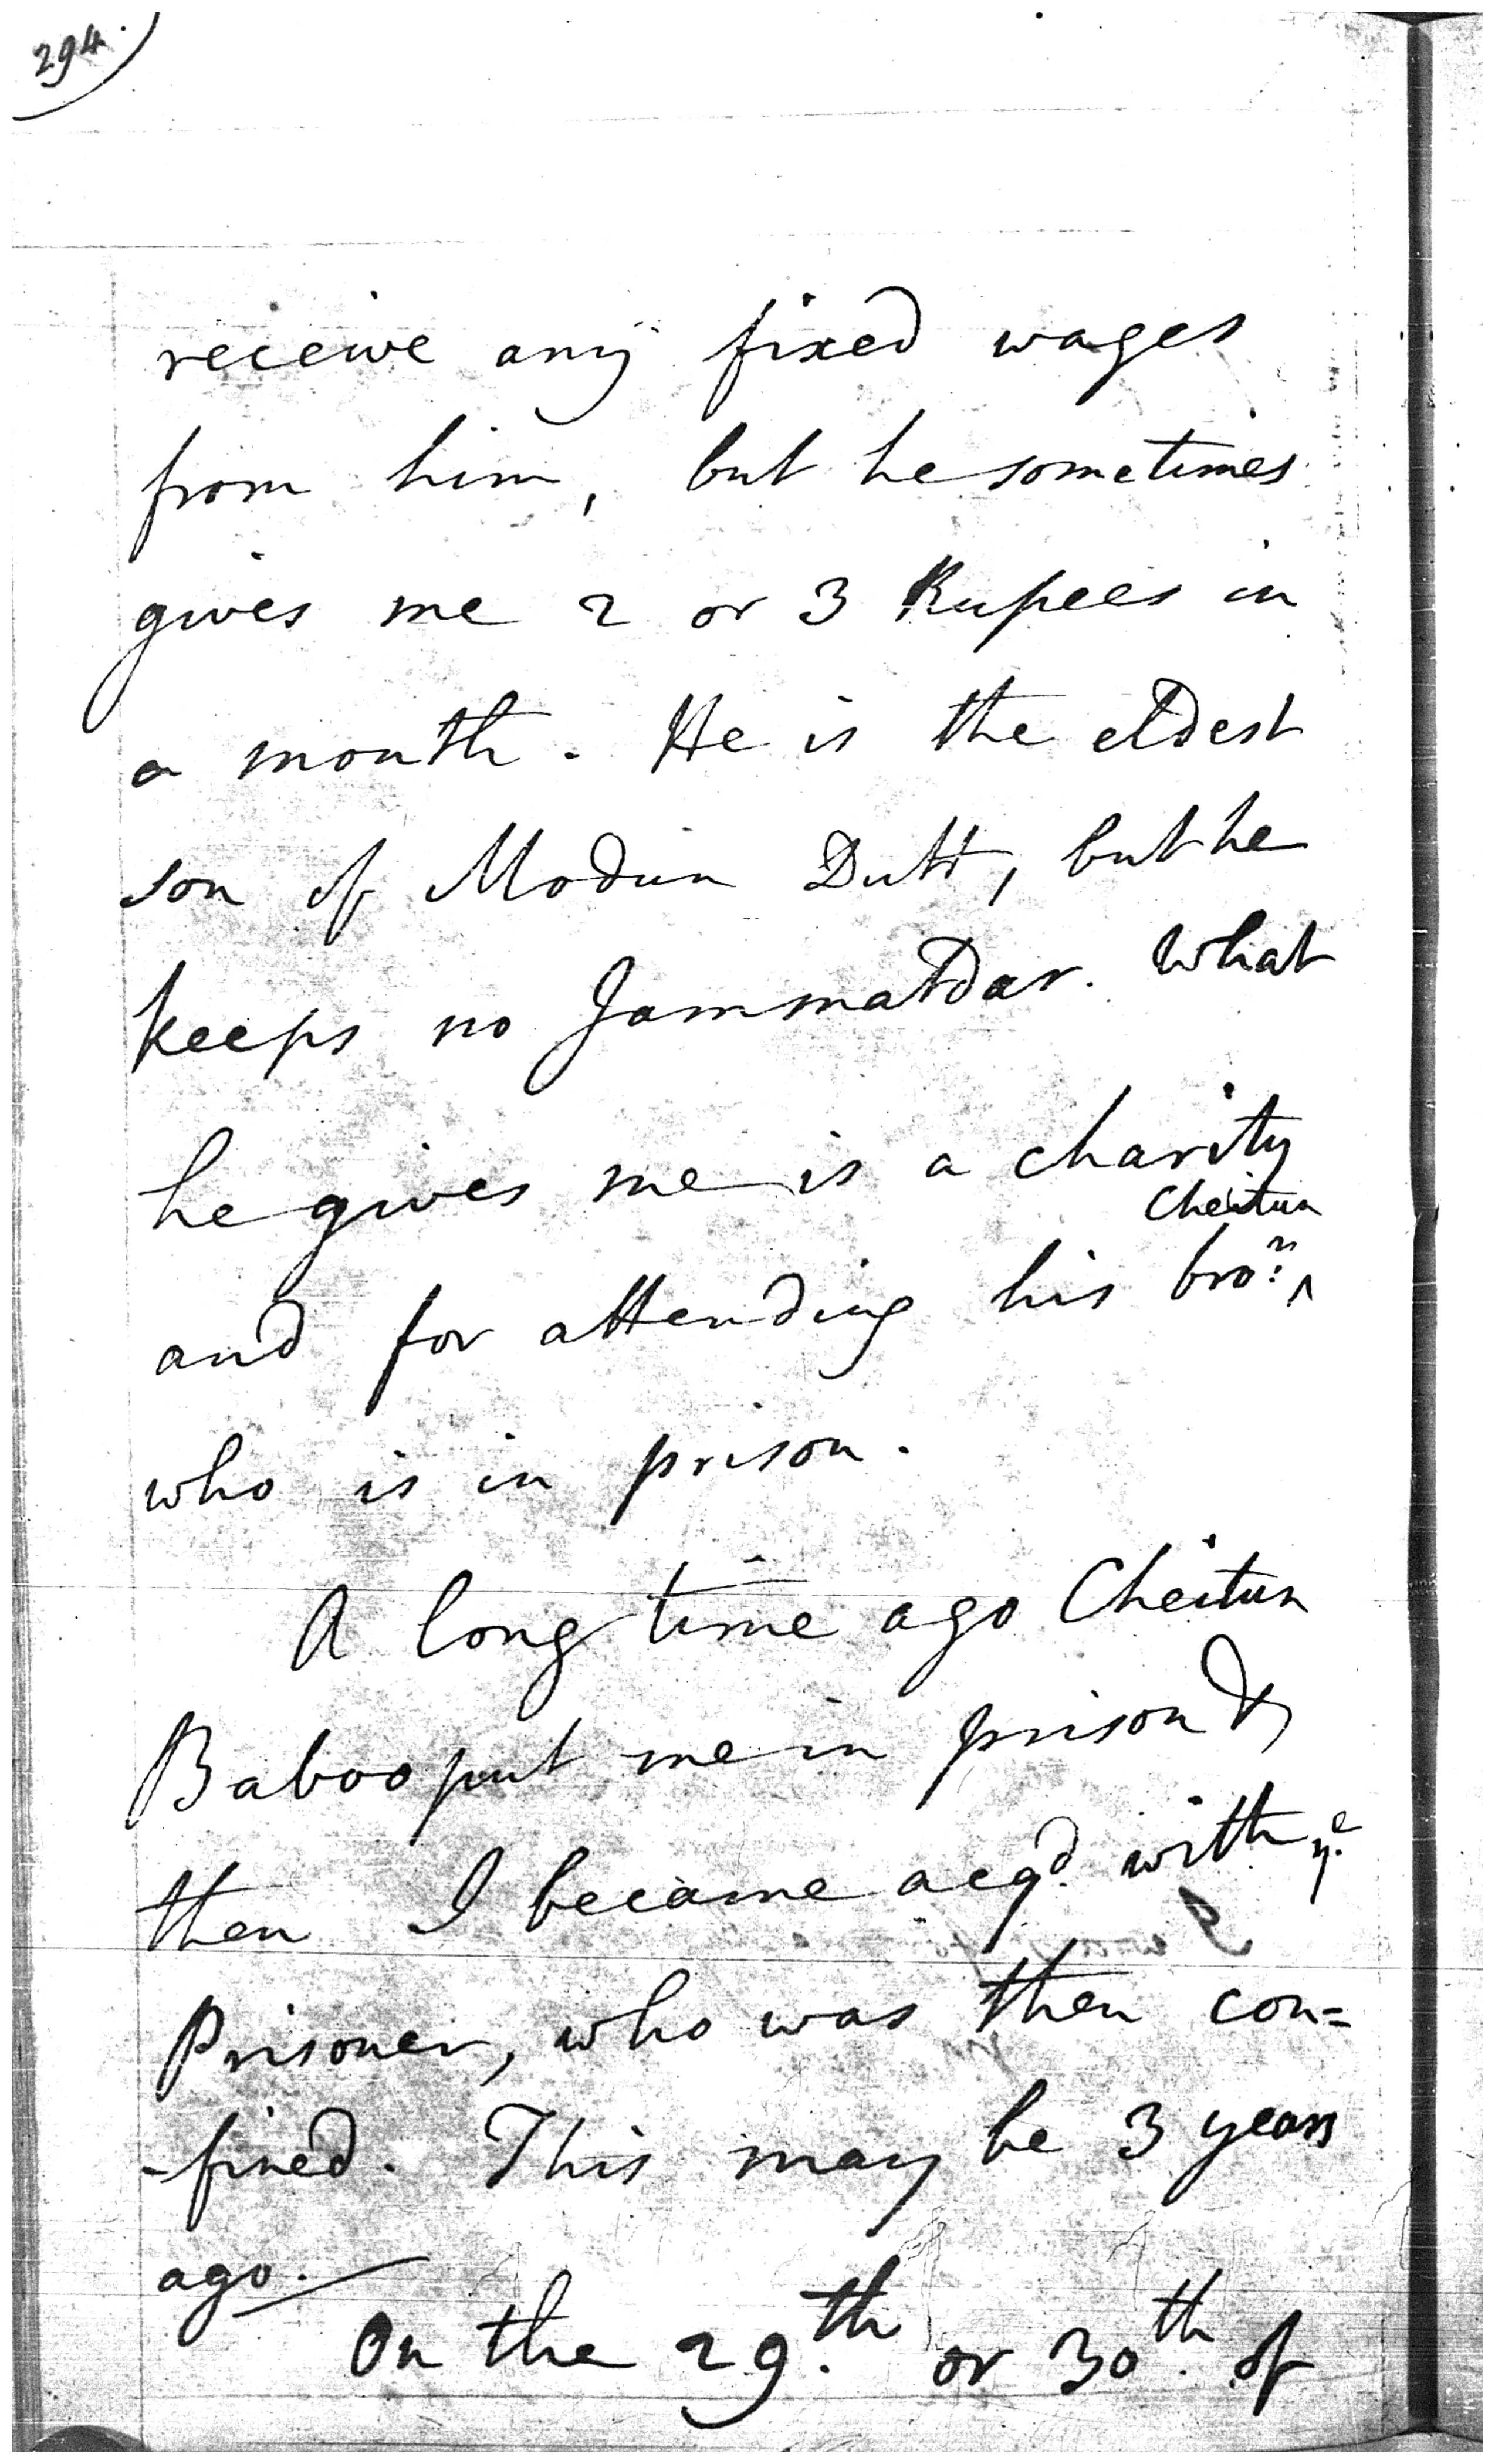 294.
receive any fixed wages
from him, but he sometimes
gives me 2 or 3 Rupees in
a month. He is the eldest
son of Modun Dutt, but he
keeps no Jammatdar. What
he gives me is a charity
Cheitun
and for attending his bro:r ^
who is in prison.
A long time ago Cheitun
Baboo put me in prison &
then I became acqd. with ye
Prisoner, who was then con=
-fined. This may be 3 years
ago.
On the 29.th or 30th. of